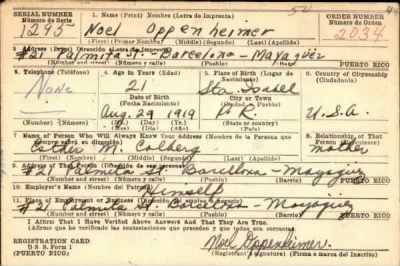 SERIAL NUMBER
Número de Serie
1295
1. Name (Print) Nombre (Letra de Imprenta)
Noel Oppenheimer
(First) (Primer Nombre) (Middle) (Segundo) (Last) (Apellido)
ORDER NUMBER
Número de Orden
2034
2. Address (Print) Dirección (Letra de Imprenta)
#21 Palmita St. Barcelona - Mayaguez
Number and street) (Número y calle) (Town) (Pueblo) PUERTO RICO
3. Telephone (Teléfono)
None
4. Age in Years (Edad)
21
Date of Birth
(Fecha Nacimiento)
Aug. 29 1919
(Mo.) (Day) (Yr.)
5. Place of Birth (Lugar de Nacimiento)
Sta. Isabel
City or Town
(Ciudad o Pueblo)
P.R.
(State or country)
6. Country of Citizenship
(Ciudadanía)
U.S.A.
7. Name of Person Who Will Always Know Your Address (Nombre de la Persona que siempre conocerá su dirección)
M. Colberg
(First) (Primer Nombre) (Middle) (Segundo) (Last) (Apellido)
8. Relationship of That Person
mother
9. Address of That Person (Dirección de esa persona)
#21 Palmita St. Barcelona - Mayaguez
(Number and street) (Número y calle) (Town) (Pueblo) PUERTO RICO
10. Employer's Name (Nombre del Patrono)
Himself
11. Place of Employment or Business
#21 Palmita St. Barcelona - Mayaguez
(Number and street) (Número y calle) (Town) (Pueblo) PUERTO RICO
I Affirm That I Have Verified Above Answers And That They Are True.
(Afirmo que he verificado las contestaciones que preceden y que todas son ciertas)
REGISTRATION CARD
D S S. Form 1
(PUERTO RICO)
Noel Oppenheimer.
(Registrant's Signature) (Firma o marca del Inscrito)